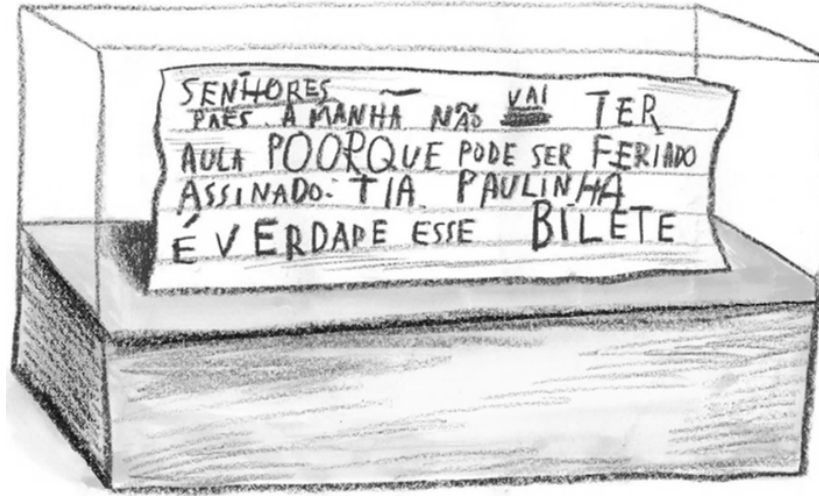 SENHORES
PAES. A MANHÃ NÃO VAI TER
AULA POORQUE PODE SER FERIADO
ASSINADO. TIA. PAULINHA
É VERDADE ESSE BILETE